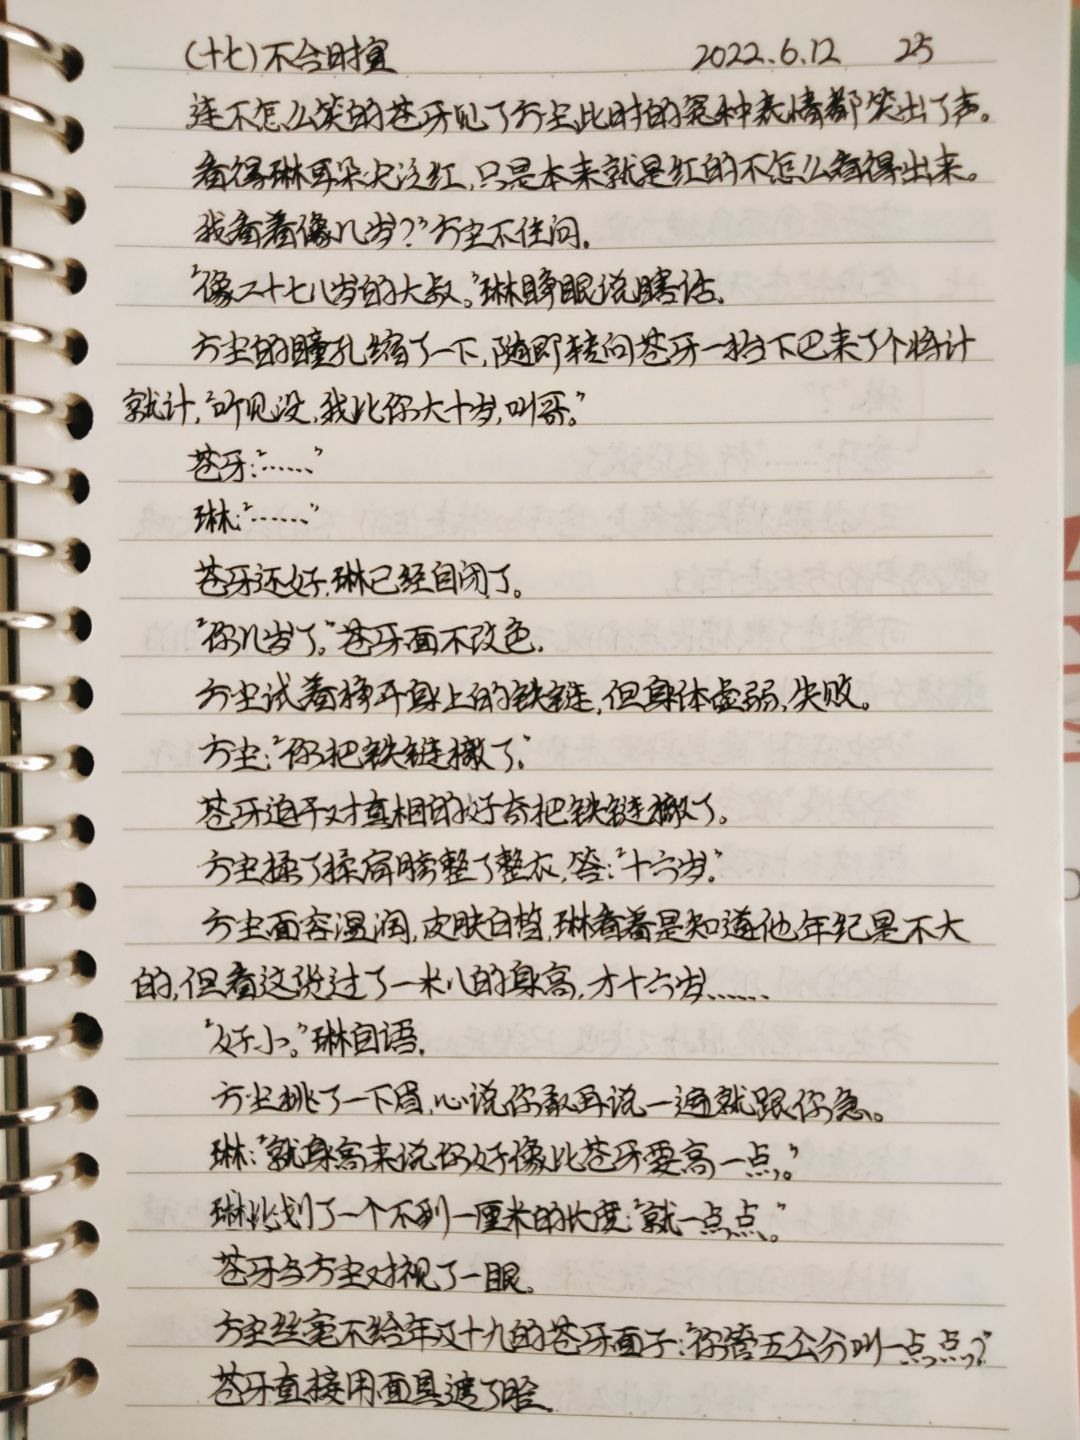 (十七)不合时宜 2022.6.12 25
连不怎么笑的苍牙见了方尘此时的冤种表情都笑出了声。
看得琳耳朵尖泛红,只是本来就是红的不怎么看得出来。
我看着像几岁?”方尘不住问.
“像二十七八岁的大叔。”琳睁眼说瞎话.
方尘的瞳孔缩了一下,随即转向苍牙一抬下巴来了个将计
就计,“听见没,我比你大十岁,叫哥。”
苍牙:“……”
琳:“……”
苍牙还好,琳已经自闭了。
“你几岁了。”苍牙面不改色.
方尘试着挣开身上的铁链,但身体虚弱,失败。
方尘:“你把铁链撤了.”
苍牙迫于对真相的好奇把铁链撤了。
方尘揉了揉肩膀整了整衣,答:“十六岁.”
方尘面容温润,皮肤白皙,琳看着是知道他年纪是不大
的,但看这说过了一米八的身高,才十六岁……
“好小。”琳自语.
方尘挑了一下眉,心说你敢再说一遍就跟你急。
琳:“就身高来说你好像比苍牙要高一点。”
琳比划了一个不到一厘米的长度:“就一点点。”
苍牙与方尘对视了一眼.
方尘丝毫不给年及十九的苍牙面子:“你管五公分叫一点点?”
苍牙直接用面具遮了脸.